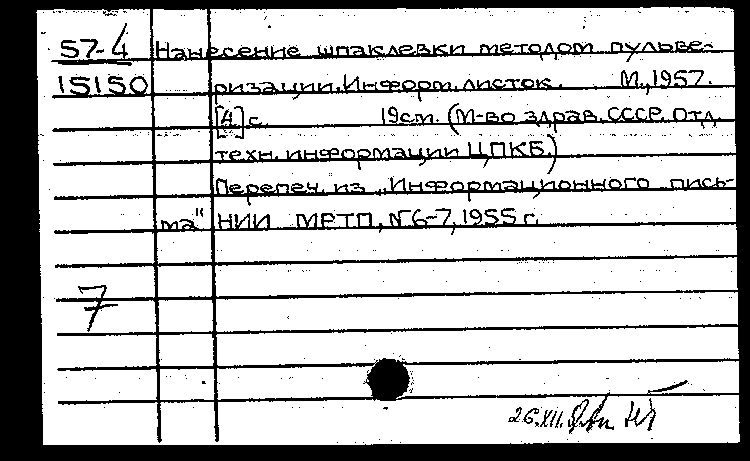 57-4 Нанесение шпаклевки методом пульве-
15150 ризации. Информ. листок. М., 1957.
[4] с. 19см. (М-во здрав. СССР. Отд.
техн. информации ЦПКБ.)
Перепеч. из „Информационного пись-
ма" НИИ МРТП, № 6-7, 1955 г.
7
26.XII.